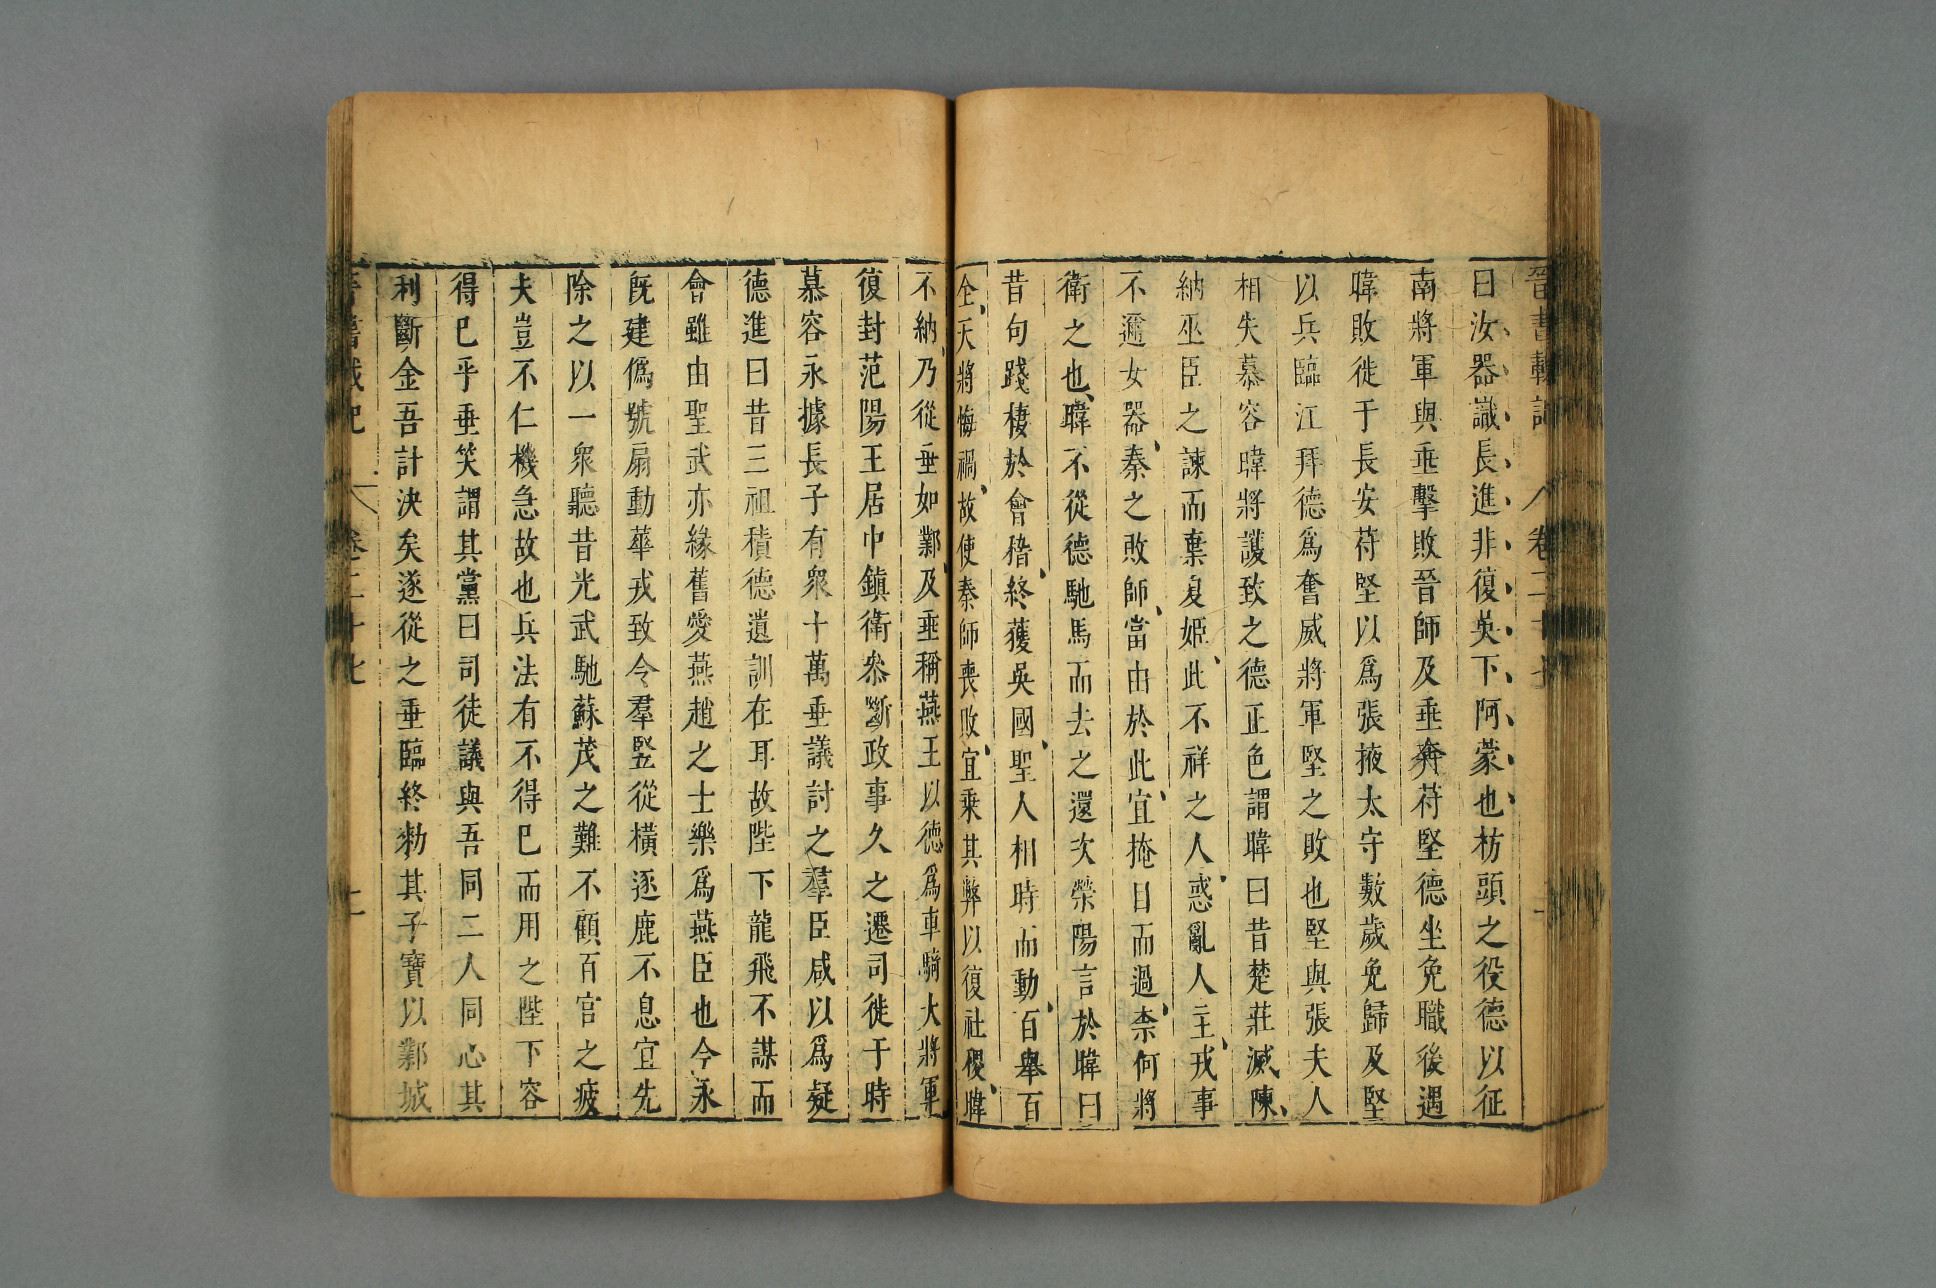 晉書載記 卷二十七
曰汝器識長進非復吳下阿蒙也枋頭之役德以征
南將軍與垂擊敗晉師及垂奔苻堅德坐免職後遇
暐敗徙于長安苻堅以爲張掖太守數歲免歸及堅
以兵臨江拜德爲奮威將軍堅之敗也堅與張夫人
相失慕容暐將護致之德正色謂暐曰昔楚莊滅陳
納巫臣之諫而棄夏姬此不祥之人惑亂人主戎事
不邇女器秦之敗師當由於此宜掩目而過柰何將
衛之也暐不從德馳馬而去之還次滎陽言於暐曰
昔句踐棲於會稽終獲吳國聖人相時而動百舉百
全天將悔禍故使秦師喪敗宜乘其弊以復社稷暐
不納乃從垂如鄴及垂稱燕王以德爲車騎大將軍
復封范陽王居中鎮衛叅斷政事久之遷司徒于時
慕容永據長子有衆十萬垂議討之羣臣咸以爲疑
德進曰昔三祖積德遺訓在耳故陛下龍飛不謀而
會雖由聖武亦緣舊愛燕趙之士樂爲燕臣也今永
旣建僞號扇動華戎致令羣豎從橫逐鹿不息宜先
除之以一衆聽昔光武馳蘇茂之難不顧百官之疲
夫豈不仁機急故也兵法有不得已而用之陛下容
得已乎垂笑謂其黨曰司徒議與吾同二人同心其
利斷金吾計決矣遂從之垂臨終勑其子寶以鄴城
晉書載記 卷二十七